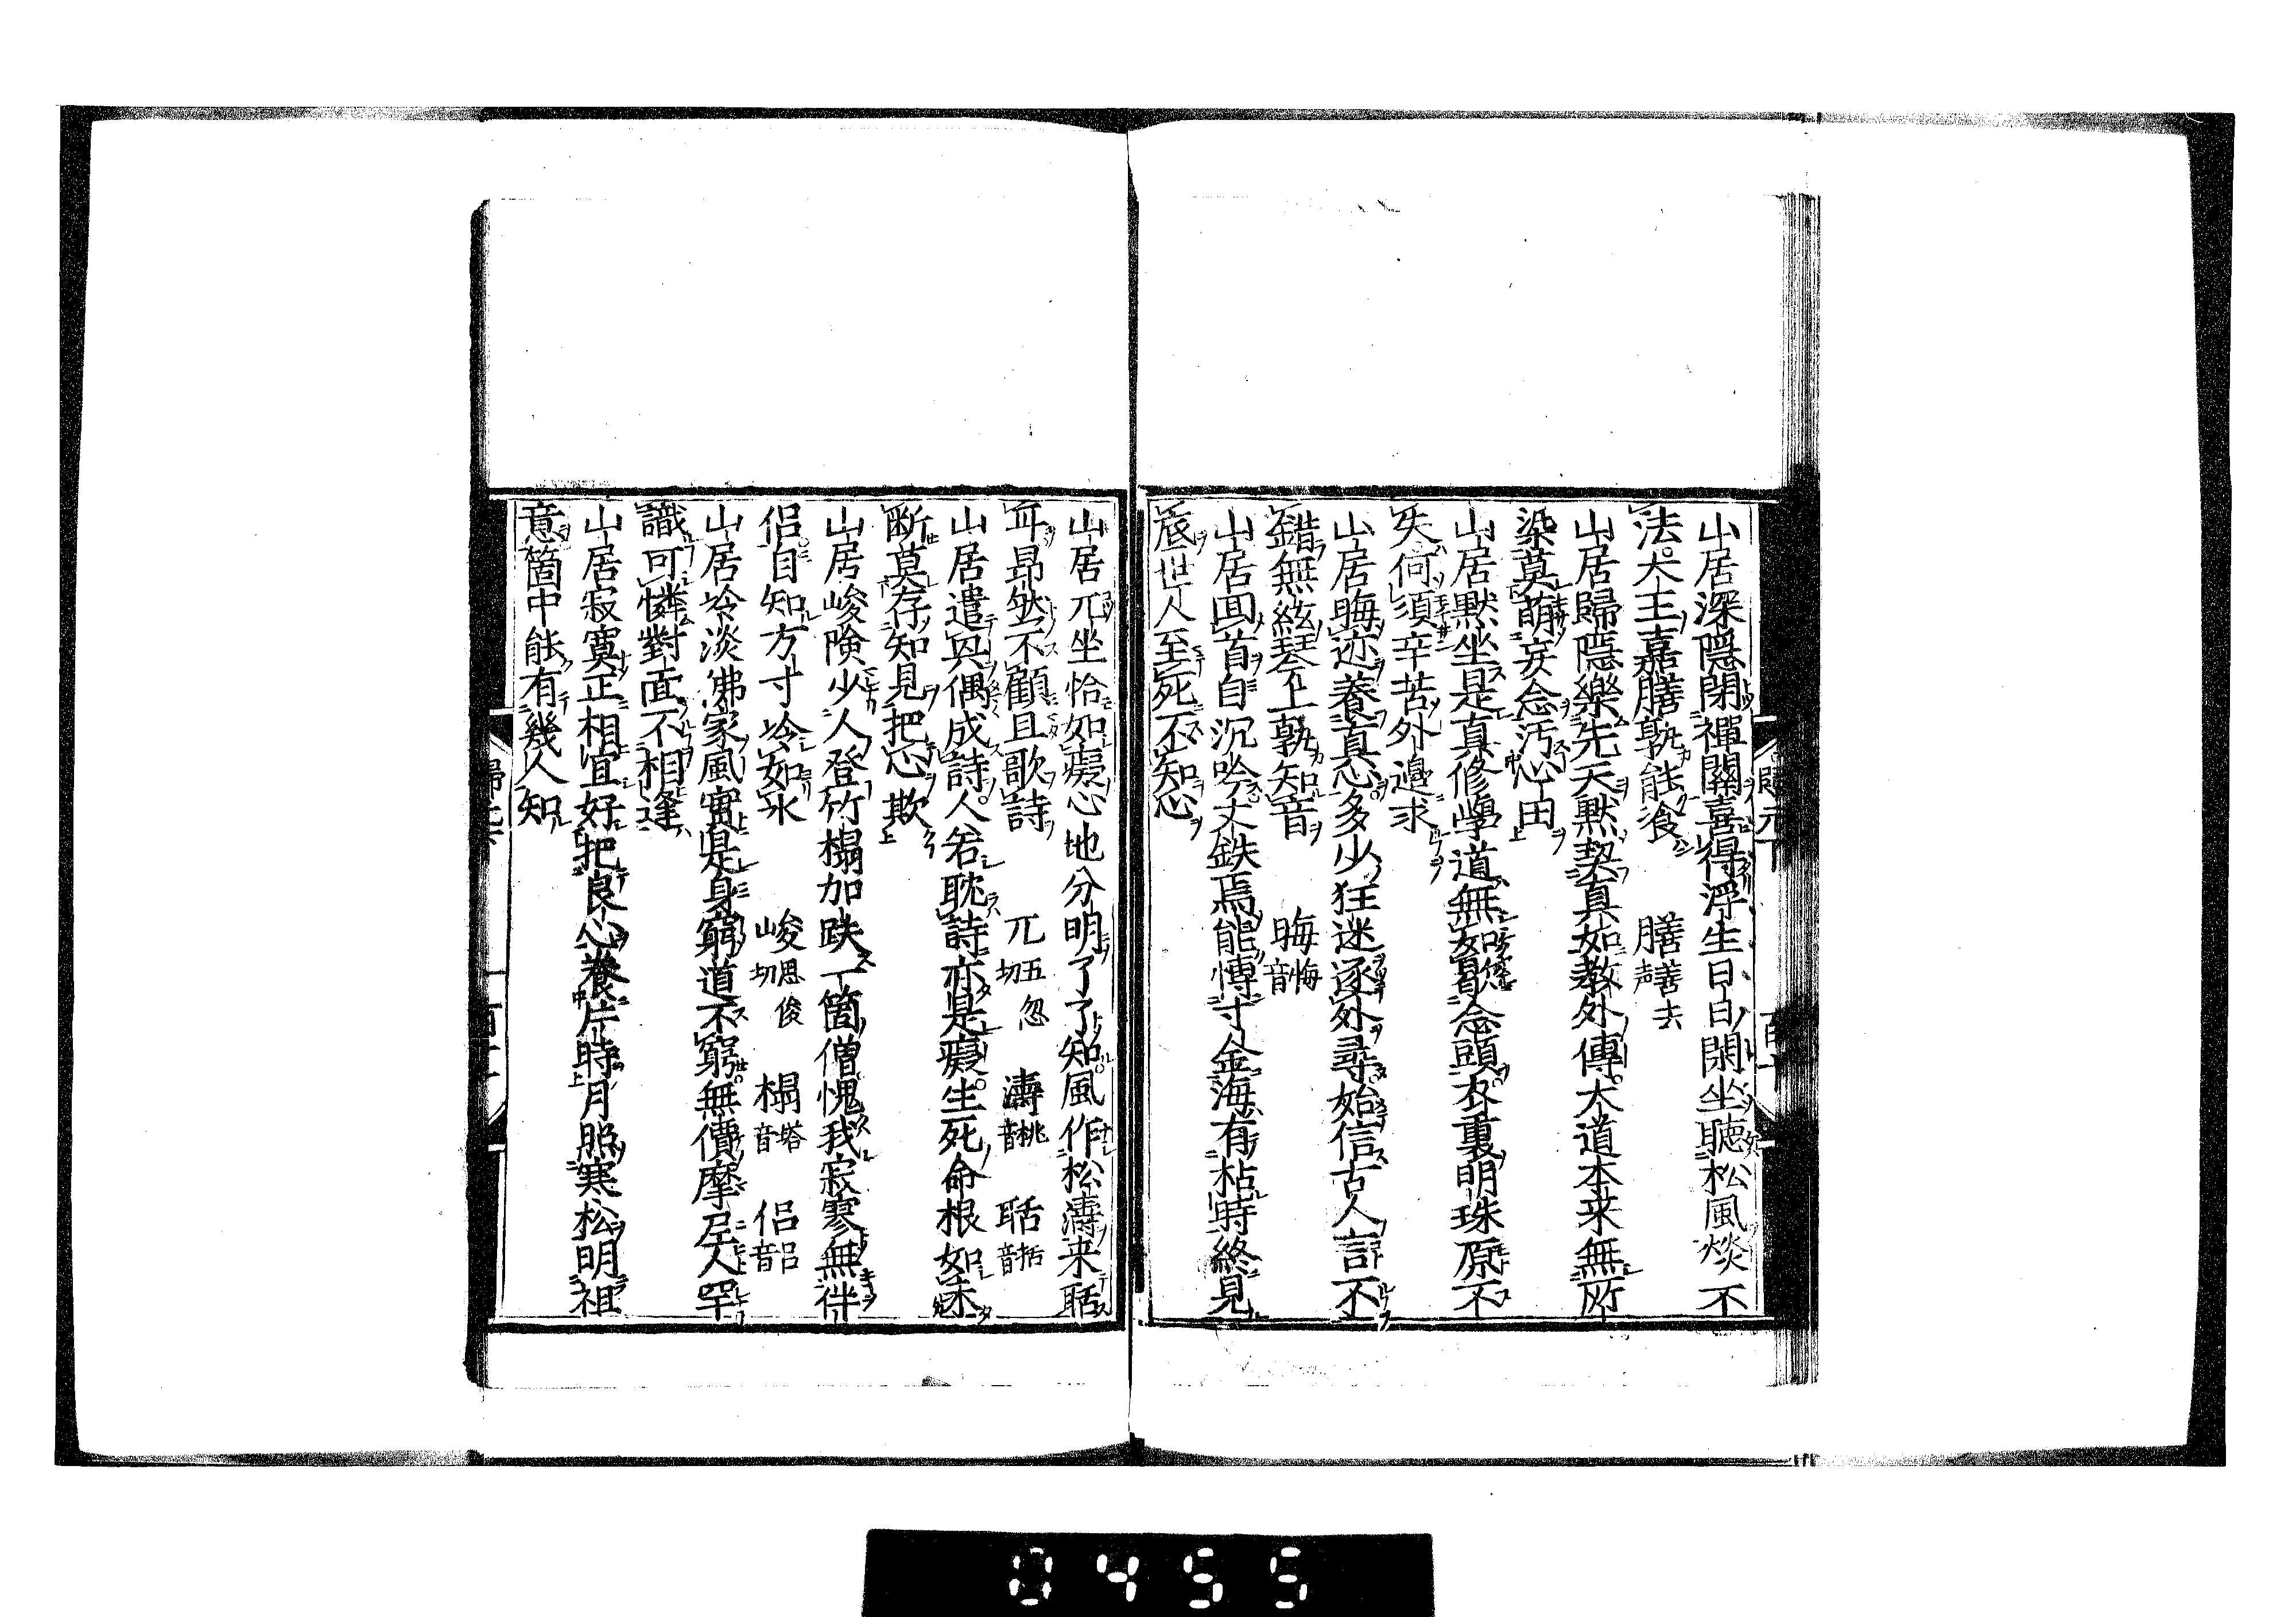 山居深隱閉禪關喜得浮生日日閑坐聽松風㷋不
法大王嘉膳孰能飡　膳善去声
山居歸隱樂先天默契真如教外傳大道本来無所
染莫萌妄念汚心田
山居默坐是真修學道無如歇念頭衣裏明珠原不
失何須辛苦外邊求
山居晦迹養真心多少狂迷逐外尋始信古人言不
錯無絃琴上孰知音　晦音悔
山居回首自沉吟丈鉄焉能愽寸金海有枯時終見
底世人至死不知心
山居兀坐恰如癡心地分明了了知風作松濤来聒
耳昂然不顧且歌詩　兀五忽切　濤音桃　聒音括
山居遣興偶成詩人若耽詩亦是癡生死命根如未
断莫存知見把心欺
山居峻険少人登竹榻加趺一箇僧愧我寂寥無伴
侣自知方寸冷如氷　峻思俊切　榻音塔　侣音吕
山居冷淡佛家風實是身窮道不窮無價摩尼人罕
識可憐對面不相逢
山居寂寞正相宜好把良心養片時月照寒松明祖
意箇中能有幾人知
0455